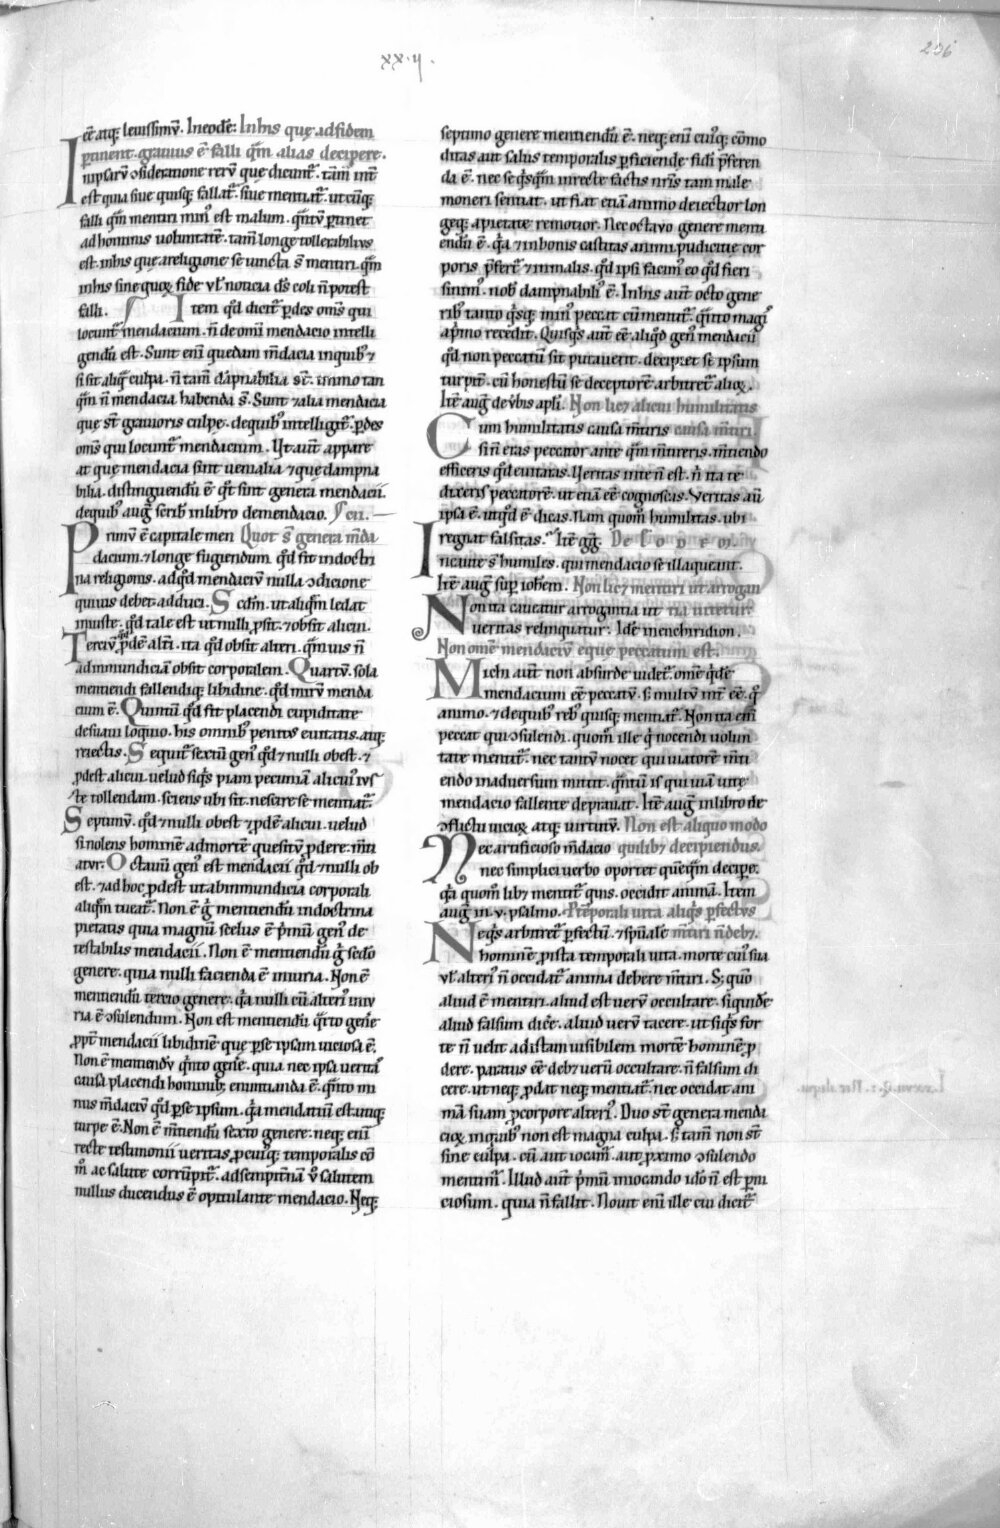 xx.ii.
206
ee̅ atq; leuissimu̅. In eode̅: In his que̜ ad fidem
p̱tinent. grauius e̅ falli q̅m alias decipere.
In ipsaru̅ ꝯsideratione reru̅ que̜ dicunt᷑. tam̅ int̅
est quia siue quisq; fallat᷑. siue mentiat᷑. ut cu̅q;
falli q̅m mentiri min᷒ est malum. q̅ntu̅ p̱tinet
ad hominis uoluntate̅. tam̅ longe tollerabilius
est. in his que̜ a religione se̅ iuncta s̅ mentiri. q̅m
in his sine quoꝝ fide ul̅ noticia d̅s coli n̅ potest
falli. Item q̅d dicit᷑ p̱des om̅s qui
locunt᷑ mendacium. n̅ de omni mendacio intelli
gendu̅ est. Sunt eni̅ quedam m̅dacia in quib᷒ ⁊
si sit aliq̅ culpa. n̅ tam̅ da̅pnabilia st̅. immo tan
q̅m n̅ mendacia habenda s̅. Sunt ⁊ alia mendacia
que̜ st̅ grauioris culpe̜. de quib᷒ intelligit᷑. p̱des
om̅s qui locunt᷑ mendacium. Ut aut̅ appare
at que̜ mendacia sint uenialia ⁊ que̜ dampna
bilia. distinguendu̅ e̅ q̅t sint genera mendacii.
de quib᷒ aug̅ scrib̅ in libro de mendacio.
Primu̅ e̅ capitale men Quot s̅ genera m̅da
dacium. ⁊ longe fugiendum q̅d fit in doctri
na religionis. ad q̅d mendaciu̅ nulla ꝯdicione
quiuis debet adduci. Secdm̅. ut aliq̅m ledat
iniuste. q̅d tale est ut nulli ꝓsit. ⁊ obsit alicui.
Terciu̅ q̅d ꝓde̅ alt̅i. ita q̅d obsit alteri. q̅muis n̅
ad immundicia̅ obsit corporalem. Quartu̅. sola
mentiendi fallendiq; libidine. q̅d miru̅ menda
cium e̅. Quintu̅ q̅d fit placendi cupiditate
de suaui loquio. his omnib᷒ penitus euitatis. atq;
reiectis. Sequit᷑ sextu̅ gen᷒ q̅d ⁊ nulli obest. ⁊
ꝓdest alicui. uelud siq̅s piam pecunia̅ alicui᷒ ius
te tollendam. sciens ubi sit. nescire se mentiat᷑.
Septimu̅. q̅d ⁊ nulli obest ⁊ ꝓde̅ alicui. uelud
si nolens homine̅ ad morte̅ quesitu̅ ꝓdere. m̅ti
atur. Octauu̅ gen᷒ est mendacii q̅d ⁊ nulli ob
est. ⁊ ad hoc ꝓdest ut ab inmundicia corporali
aliq̅m tueat᷑. Non e̅ g̅ mentiendu̅ in doctrina
pietatis quia magnu̅ scelus e̅ ⁊ p̅mu̅ gen᷒ de
testabilis mendacii. Non e̅ mentiendu̅ g̅ sed̅o
genere. quia nulli facienda e̅ iniuria. Non e̅
mentiendu̅ tercio genere. q̅a nulli cu̅ alteri᷒ iniu
ria e̅ ꝯsulendum. Non est mentiendu̅ q̅rto gen̅e
ꝓpt̅ mendacii libidine̅ que̜ p̱ se ipsum uiciosa e̅.
Non e̅ mentiendu̅ q̅nto gen̅e. quia nec ipsa ueritas
causa placendi hominib; enuntianda e̅. q̅nto mi
nus m̅daciu̅ q̅d p̱ se ipsum. q̅a mendatiu̅ est. utiq;
turpe e̅. Non e̅ m̅tiendu̅ sexto genere. neq; eni̅
recte testimonii ueritas ꝓ cuiq; temporalis co̅
m̅ ac salute corru̅pit᷑. ad sempit̅na̅ u̅o salutem
nullus ducendus e̅ opitulante mendacio. Neq;
septimo genere mentiendu̅ e̅. neq; eni̅ cui᷒q; co̅mo
ditas aut salus temporalis p̱ficiende̜ fidi p̅feren
da e̅. nec se q̅sq̅m in recte factis nr̅is tam male
moneri sentiat. ut fiat etia̅ animo deiectior lon
geq; a pietate remotior. Nec octauo genere menti
endu̅ e̅. q̅a ⁊ in bonis castitas animi pudicitie̜ cor
poris p̅fert᷑ ⁊ in malis. q̅d ipsi facim᷒ eo q̅d fieri
sinim᷒. nob̅ dampnabili᷒ e̅. In his aut̅ octo gene
rib᷒ tanto q̅sq; min᷒ peccat cu̅ mentit᷑. q̅nto magi᷒
a p̅mo recedit. Quisq̅s aut̅ ee̅ aliq̅d gen᷒ mendacii
q̅d non peccatu̅ sit putauerit. decipiet se ipsum
turpit̅. cu̅ honestu̅ se deceptore̅ arbitret᷑ alioꝝ.
Ite̅ aug̅ de u̅bis ap̅li. Non licet alicui humilitatis
Cum humilitatis causa m̅tiris causa m̅tiri.
si n̅ eras peccator ante q̅m m̅tireris. m̅tiendo
efficeris q̅d euitaras. Ueritas in te n̅ est. n̅ ita te
dixeris peccatore̅. ut etia̅ ee̅ cognoscas. Ueritas au̅
ipsa e̅. ut q̅d e̅ dicas. Nam quom̅ humilitas. ubi
regnat falsitas. Ite̅ g̅g̅. De eodem.
Incaute s̅ humiles. qui mendacio se illaqueant.
Ite̅ aug̅ sup̱ ioh̅em. Non licet mentiri ut arrogan
Non ita caueatur arrogantia ut tia uitetur.
ueritas relinquatur. Ide̅ in enchiridion.
Non om̅e mendaciu̅ e̜que peccatum est.
Michi aut̅ non absurde uidet᷑. om̅e q̅de̅
mendacium ee̅ peccatu̅. s̅ multu̅ int̅ ee̅. q̊
animo. ⁊ de quib᷒ reb᷒ quisq; mentiat᷑. Non ita eni̅
peccat qui ꝯsulendi. quom̅ ille q̅ nocendi uolun
tate mentit᷑. nec tantu̅ nocet qui uiatore̅ m̅ti
endo in aduersum mittit. q̅ntu̅ is qui uia̅ uite̜
mendacio fallente deprauat. Ite̅ aug̅ in libro de
ꝯflictu uicioꝝ atq; uirtutu̅. Non est aliquo modo
Nec artificioso m̅dacio quilib; decipiendus.
nec simplici uerbo oportet que̅q̅m decipe̅.
q̅a quom̅ lib; mentit᷑ quis. occidit anima̅. Item
aug̅ in. v. psalmo. P̅ temporali uita aliq̅s p̱fectus
Neq̅s arbitret᷑ p̱fectu̅. ⁊ sp̅uale̅ m̅tiri n̅ deb;.
homine̅ ꝓ ista temporali uita. morte cui᷒ sua
ul̅ alteri᷒ n̅ occidat᷑ anima debere m̅tiri. S; quo̅
aliud e̅ mentiri. aliud est ueru̅ occultare. siquide̅
aliud falsum dic̅e. aliud ueru̅ tacere. ut siq̅s for
te n̅ uelit ad istam uisibilem morte̅ homine̅ ꝓ
dere. paratus ee̅ deb; ueru̅ occultare. n̅ falsum di
cere. ut neq; ꝓdat neq; mentiat᷑. nec occidat ani
ma̅ suam ꝓ corpore alteri᷒. Duo st̅ genera menda
cioꝝ in quib᷒ non est magna culpa. s̅ tam̅ non st̅
sine culpa. cu̅ aut iocam᷒. aut ꝓximo ꝯsulendo
mentim᷒. Illud aut̅ p̅mu̅ in iocando ido̅ n̅ est p̱ni
ciosum. quia n̅ fallit. Nouit eni̅ ille cui dicit᷑